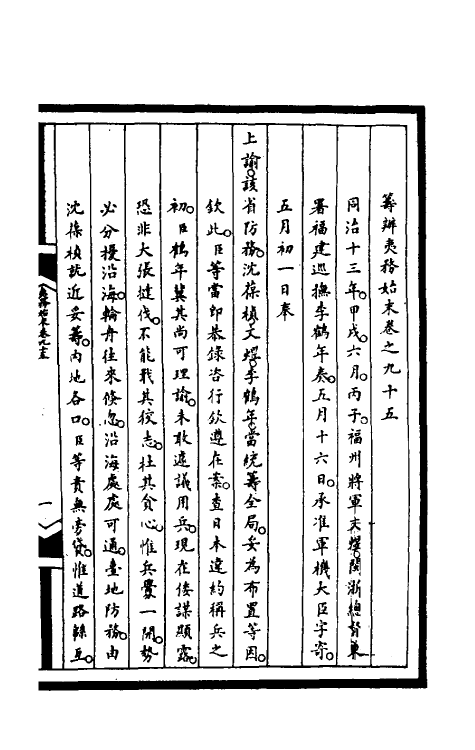 籌辦夷務始末卷之九十五
同治十三年。甲戌。六月。丙子。福州將軍文煜。閩浙總督兼
署福建巡撫李鶴年奏。五月十六日。承准軍機大臣字寄。
五月初一日奉
上諭。該省防務。沈葆楨文煜。李鶴年。當統籌全局。妥為布置等因。
欽此。臣等當即恭錄咨行欽遵在案。查日本違約稱兵之
初。臣鶴年冀其尚可理諭。未敢遽議用兵。現在倭謀顯露。
恐非大張撻伐。不能戢其狡志。杜其貪心。惟兵釁一開。勢
必分擾沿海。輪舟往來倏忽。沿海處處可通。臺地防務。由
沈葆楨就近妥籌。內地各口。臣等責無旁貸。惟道路緜亙。
夷務始末卷九十五
一